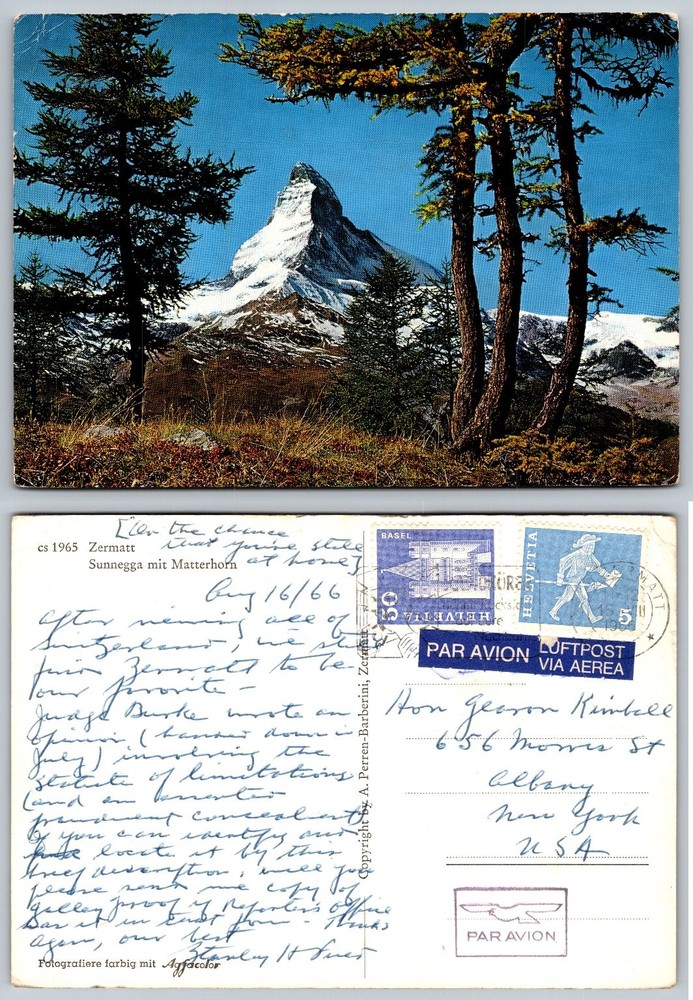 cs 1965 Zermatt
Sunnegga mit Matterhorn
[On the chance
that you're still
at home]
Aug 16/66
After viewing all of
Switzerland, we still
find Zermatt to be
our favorite -
Judge Burke wrote an
opinion (handed down in
July) involving the
statute of limitations
(and an asserted
fraudulent concealment)
If you can identify and
locate it by this
brief description, will you
please send me copy of
galley proof if Reporter's office
has it in that form - Thanks
again, our best
Stanley H
Fotografiere farbig mit Agfacolor
Copyright by A. Perren-Barberini, Zermatt
BASEL
50
HELVETIA
HELVETIA
5
PAR AVION
LUFTPOST
VIA AEREA
Hon Gearon Kimball
656 Morris St
Albany
New York
USA
PAR AVION